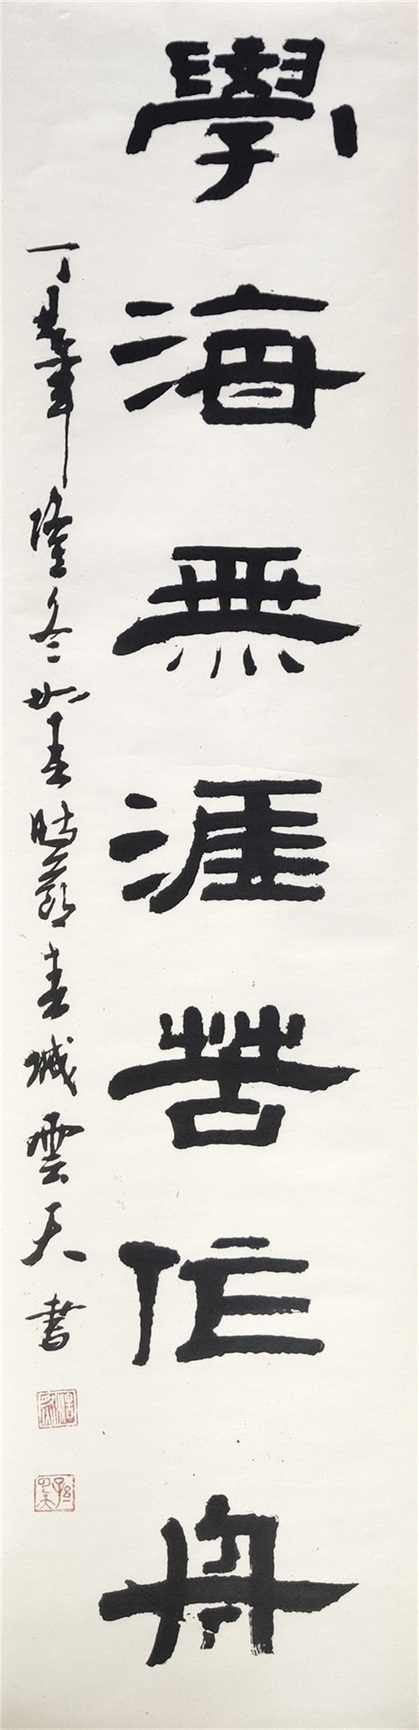 學海無涯苦作舟
丁酉年隆冬如春時節春城雲天書